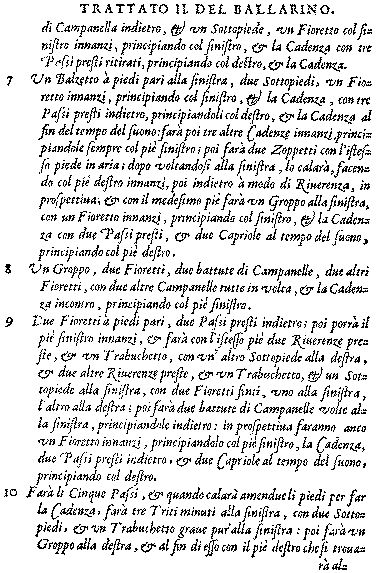 TRATTATO II. DEL BALLARINO.
di Campanella indietro, & un Sottopiede, un Fioretto col si=
nistro innanzi, principiando col sinistro, & la Cadenza con tre
Passi presti ritirati, principiando col destro, & la Cadenza.
7 Vn Balzetto à piedi pari alla sinistra, due Sottopiedi, un Fio=
retto innanzi, principiando col sinistro, & la Cadenza, con tre
Passi presti indietro, principiandoli col destro, & la Cadenza al
fin del tempo del suono: farà poi tre altre Cadenze innanzi, princi=
piandole sempre col piè sinistro; poi farà due Zoppetti con l'istes=
so piede in aria; dopo voltandosi alla sinistra, lo calarà, facen=
do col piè destro innanzi, poi indietro à modo di Riuerenza, in
prospettiua; & con il medesimo piè farà un Groppo alla sinistra,
con un Fioretto innanzi, principiando col sinistro, & la Caden=
za con due Passi presti, & due Capriole al tempo del suono,
principiando col piè destro.
8 Vn Groppo, due Fioretti, due battute di Campanelle, due altri
Fioretti, con due altre Campanelle tutte in volta, & la Caden=
za incontro, principiando col piè sinistro.
9 Due Fioretti à piedi pari, due Passi presti indietro; poi porrà il
piè sinistro innanzi, & farà con l'istesso piè due Riuerenze pre=
ste, & un Trabuchetto, con un' altro Sottopiede alla destra,
& due altre Riuerenze preste, & un Trabuchetto, & un Sot=
topiede alla sinistra, con due Fioretti finti, uno alla sinistra,
l'altro alla destra; poi farà due battute di Campanelle volte al=
la sinistra, principiandole indietro: in prospettiua faranno anco
un Fioretto innanzi, principiandolo col piè sinistro, la Cadenza,
due Passi presti indietro, & due Capriole al tempo del suono,
principiando col destro.
10 Farà li Cinque Passi, & quando calarà amendue li piedi per far
la Cadenza, farà tre Triti minuti alla sinistra, con due Sotto=
piedi, & un Trabuchetto graue pur' alla sinistra: poi farà un
Groppo alla destra, & al fin di esso con il piè destro che si troua=
rà al=